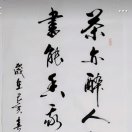 茶亦醉人
書能香我
歲在